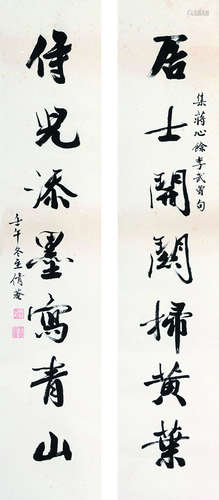 居士開關掃黃葉
集蔣心餘李武曾句
侍兒添墨寫青山
壬午冬至倩菴